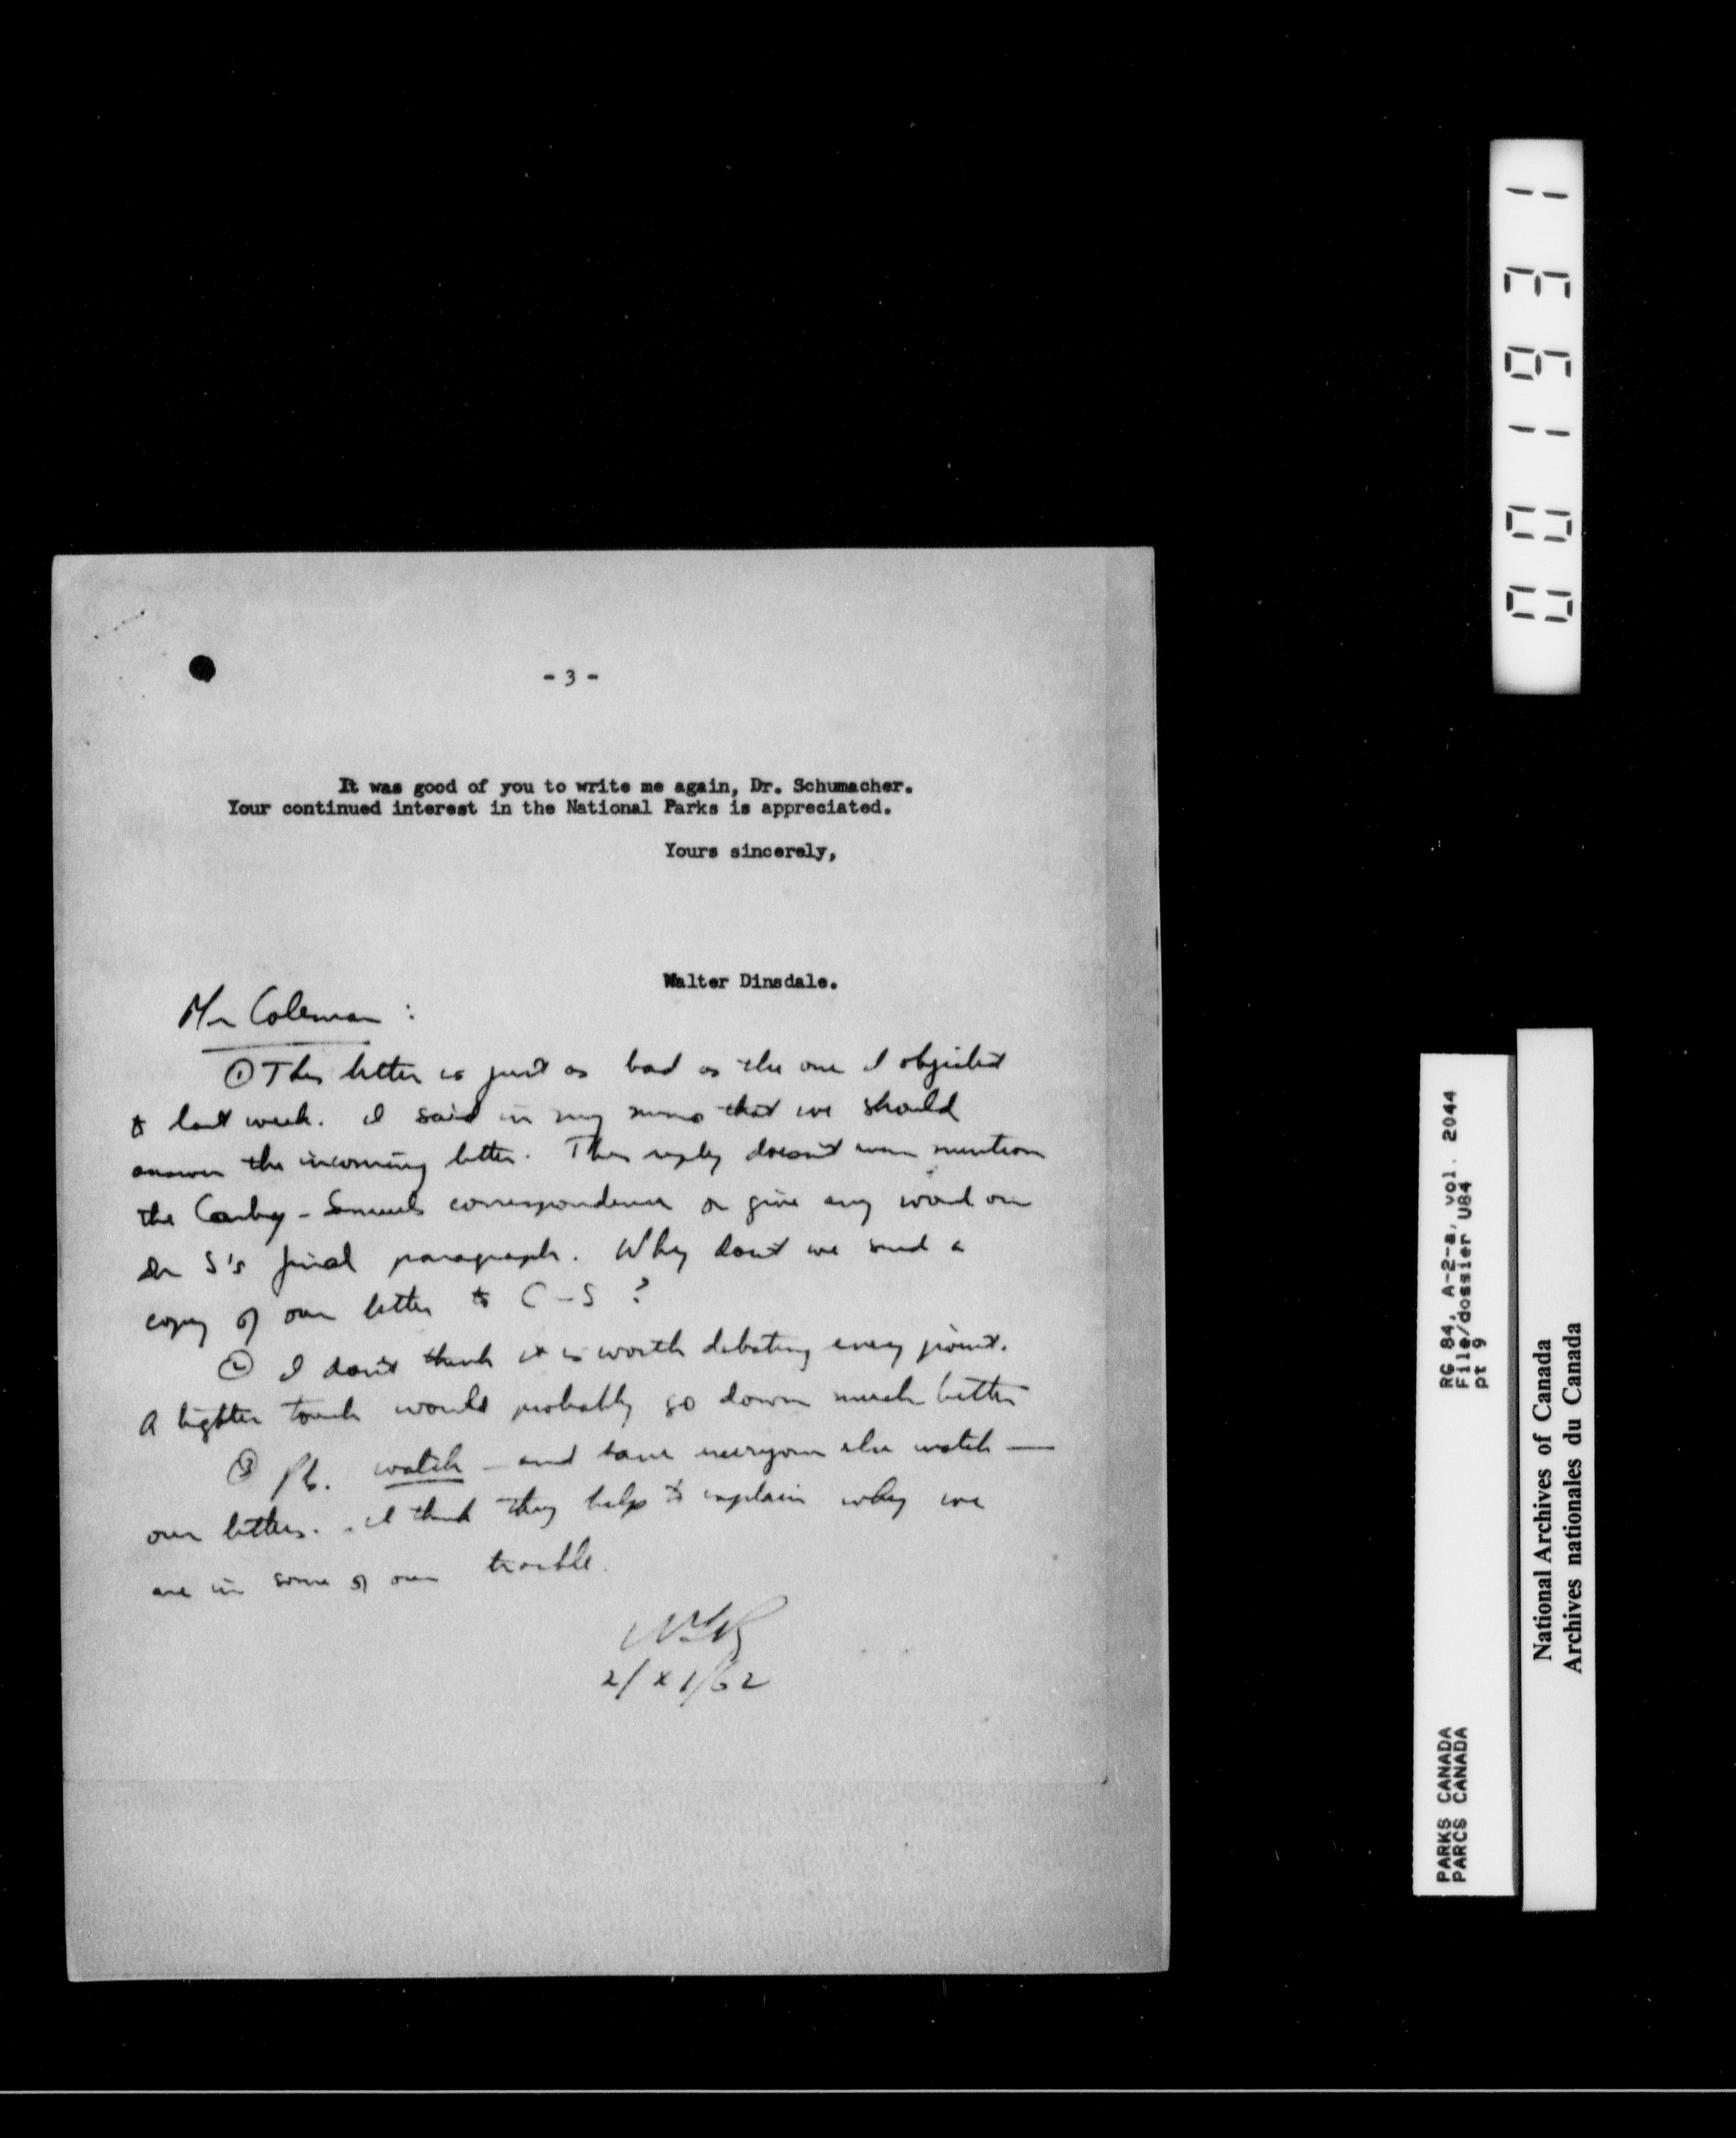 - 3 -
It was good of you to write me again, Dr. Schumacher.
Your continued interest in the National Parks is appreciated.
Yours sincerely,
Walter Dinsdale.
Mr Coleman :
① This letter is just as bad as the one I objected
to last week. I said in my memo that we should
answer the incoming letter. This reply doesn't even mention
the - Samuels correspondence or give any word on
Dr S's final paragraph. Why don't we send a
copy of our letter to C-S ?
② I don't think it is worth debating every point.
A lighter touch would probably go down much better
③ Pls. watch - and have everyone else watch —
our letters. I think they help to explain why we
are in some of our trouble.
2/XI/62
001931
RG 84, A-2-a, vol. 2044
File/dossier U84
pt 9
PARKS CANADA
PARCS CANADA
National Archives of Canada
Archives nationales du Canada